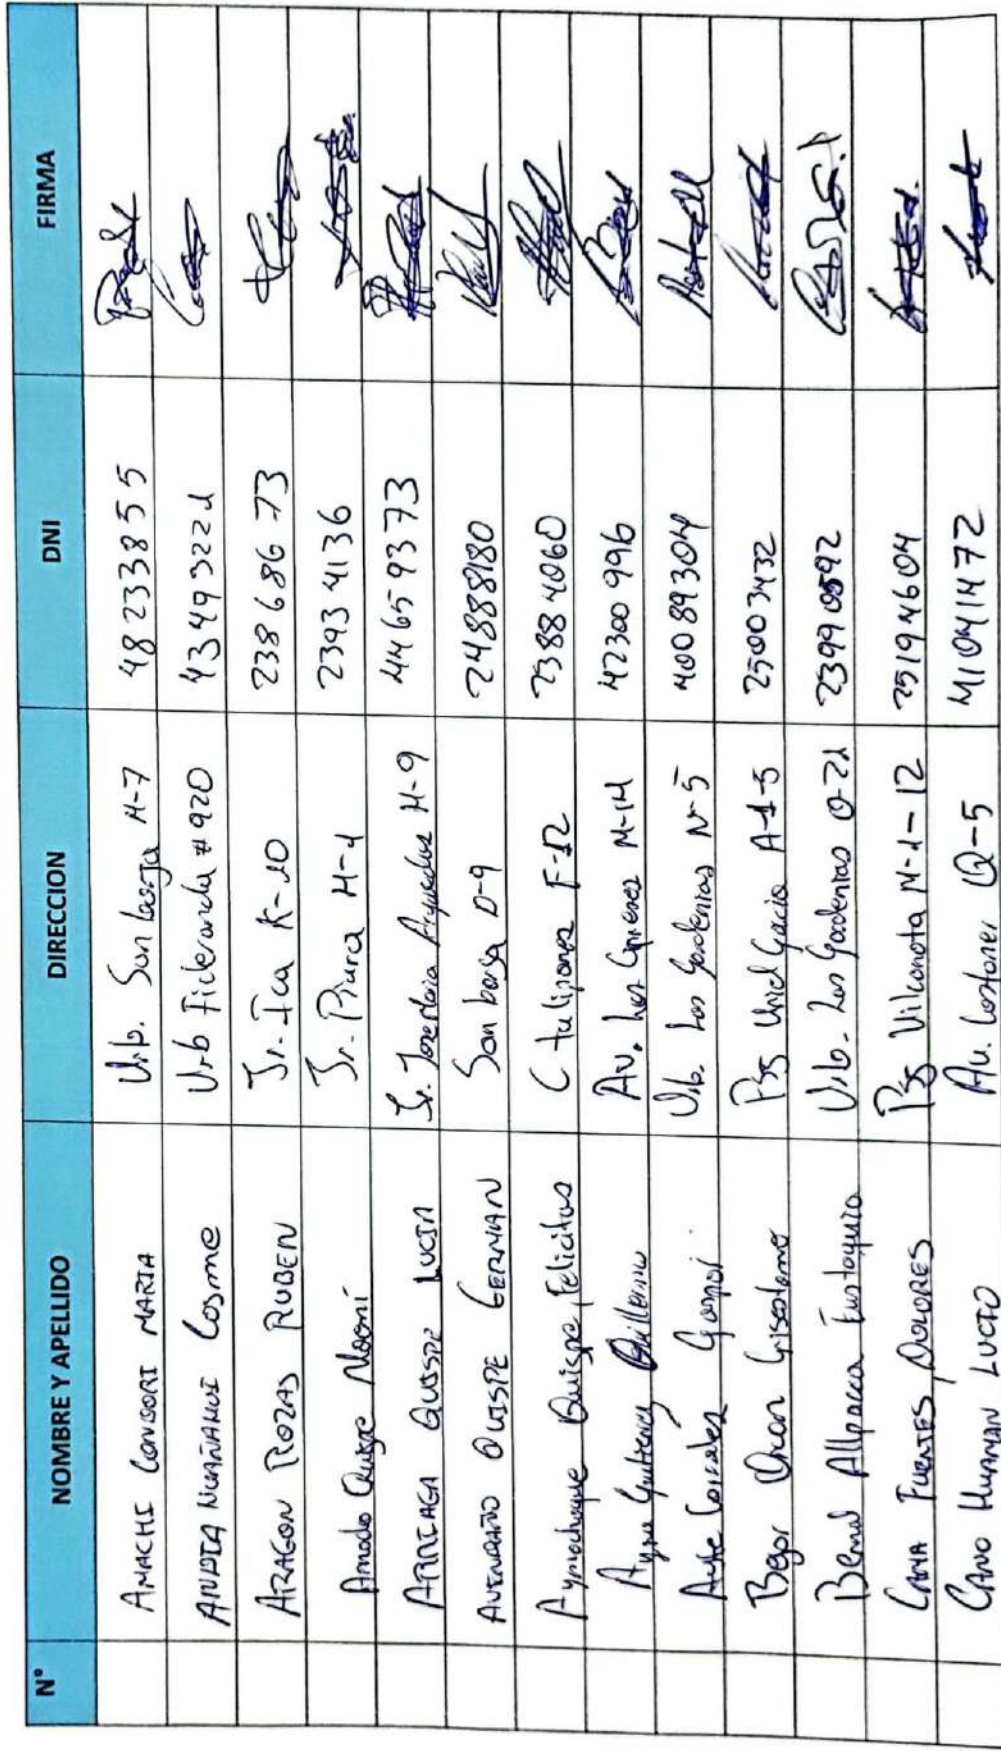 N° NOMBRE Y APELLIDO DIRECCION DNI FIRMA
AMACHI CONDORI MARIA Urb. San borja H-7 48233855
ANDIA ÑUAÑAHUI Cosme Urb Ficleranda # 920 43493221
ARAGON ROZAS RUBEN Jr. Ica K-10 23868673
Amado Quispe Noemí Jr. Piura H-1 23934136
ARTEAGA QUISPE LUCIA Jr. Jose Maria Arguedas H-9 44659373
AVENDAÑO QUISPE GERMAN San borja D-9 24888180
Aymachoque Quispe Felicitas C tulipanes F-12 23884060
Ayma Gutierrez Guillermo Av. Los M-14 42300996
Gonzales Urb. Los Gardenias N-5 40089304
Bejar Grisostomo Psj Uriel Garcia A-1-5 25003432
Bernal Allpacca Eustaquio Urb. Los Gardenias O-21
CAMA FUENTES DOLORES Psj Vilcanota M-1-12 25194604
CANO HUAMAN LUCIO Av. Costaner Q-5 41041472